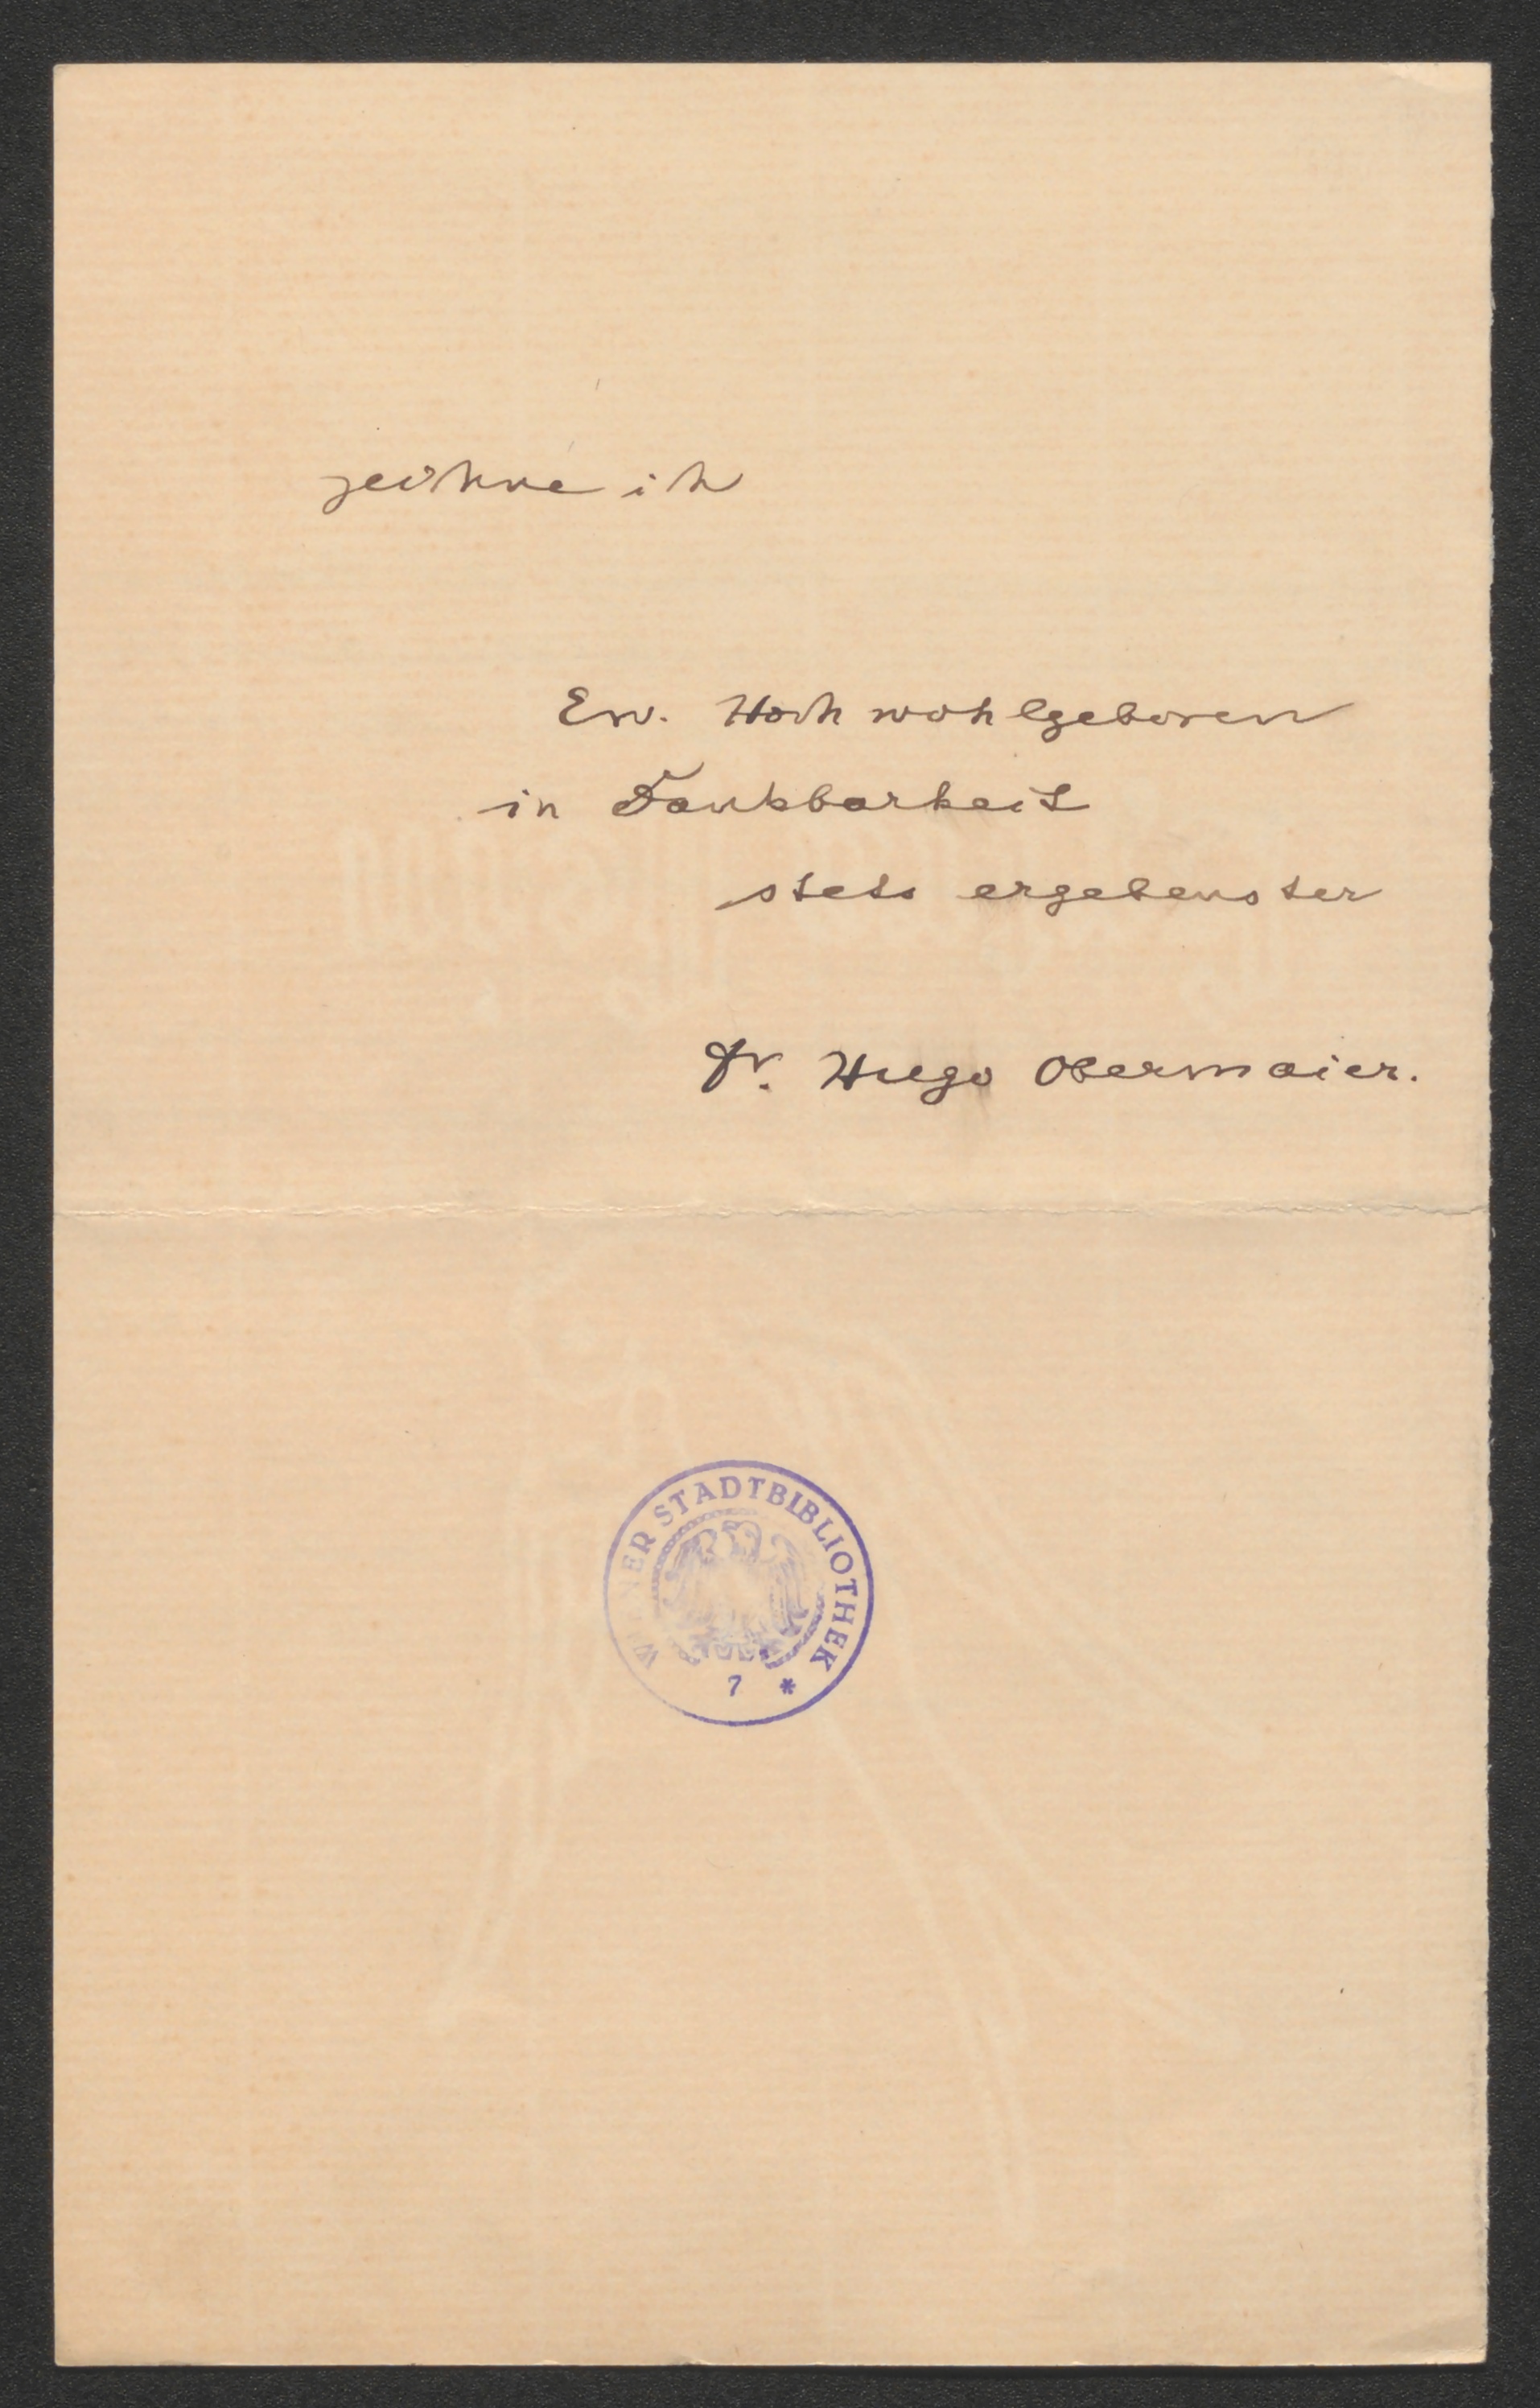 zeichne ich
Ew. Hochwohlgeboren
in Dankbarkeit
stets ergebenster
Dr. Hugo Obermaier.
WIENER STADTBIBLIOTHEK
7 *